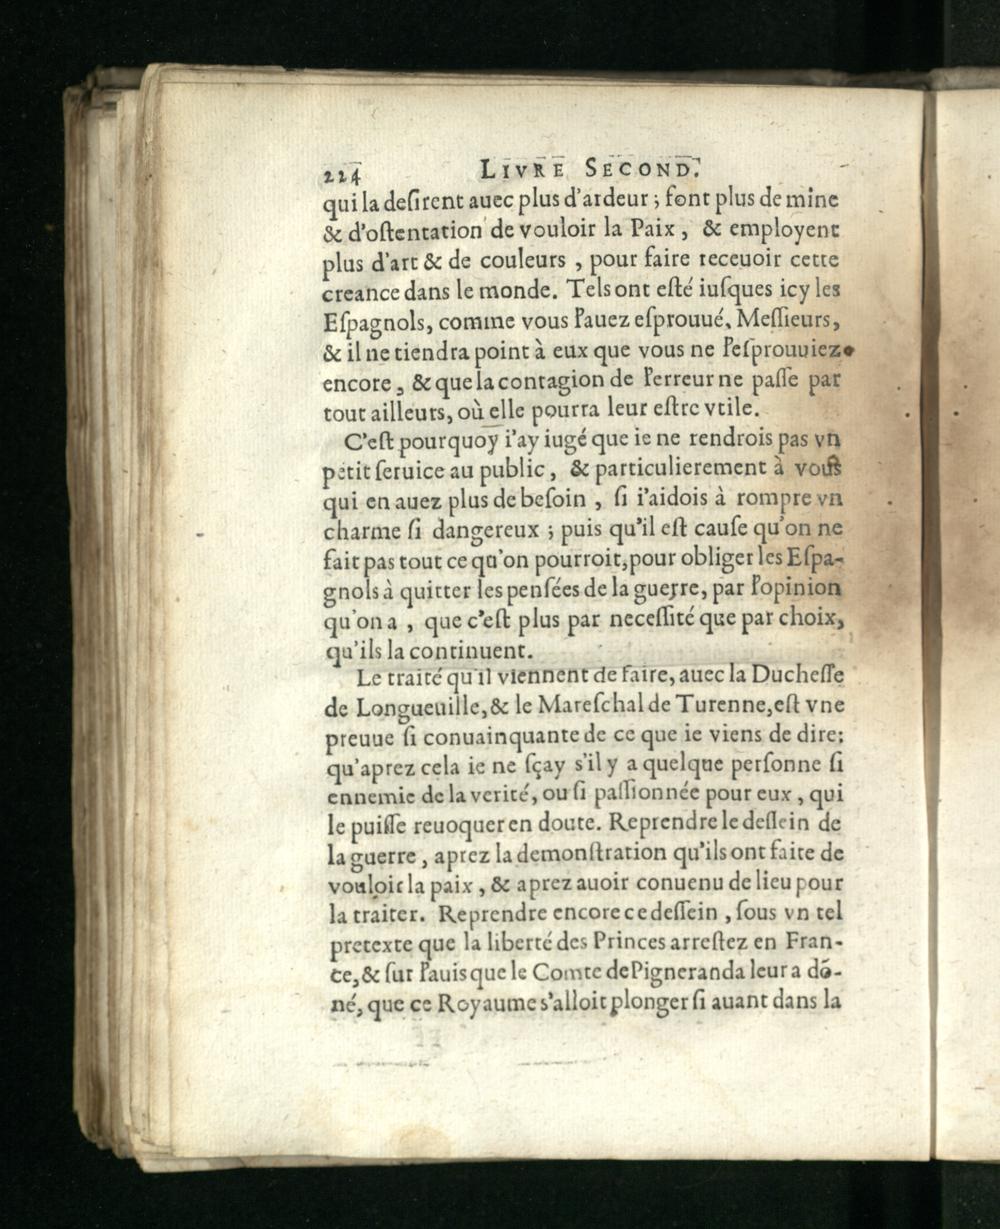 224 LIVRE SECOND.
qui la deſirent auec plus d'ardeur ; font plus de mine
& d'oſtentation de vouloir la Paix, & employent
plus d'art & de couleurs, pour faire receuoir cette
creance dans le monde. Tels ont eſté iuſques icy les
Eſpagnols, comme vous l'auez eſprouué, Meſſieurs,
& il ne tiendra point à eux que vous ne l'eſprouuiez
encore, & que la contagion de l'erreur ne paſſe par
tout ailleurs, où elle pourra leur eſtre vtile.
C'eſt pourquoy i'ay iugé que ie ne rendrois pas vn
petit ſeruice au public, & particulierement à vous
qui en auez plus de beſoin, ſi i'aidois à rompre vn
charme ſi dangereux ; puis qu'il eſt cauſe qu'on ne
fait pas tout ce qu'on pourroit, pour obliger les Eſpa-
gnols à quitter les penſées de la guerre, par l'opinion
qu'on a, que c'eſt plus par neceſſité que par choix,
qu'ils la continuent.
Le traité qu'il viennent de faire, auec la Ducheſſe
de Longueuille, & le Mareſchal de Turenne, eſt vne
preuue ſi conuainquante de ce que ie viens de dire;
qu'aprez cela ie ne ſçay s'il y a quelque perſonne ſi
ennemie de la verité, ou ſi paſſionnée pour eux, qui
le puiſſe reuoquer en doute. Reprendre le deſſein de
la guerre, aprez la demonſtration qu'ils ont faite de
vouloir la paix, & aprez auoir conuenu de lieu pour
la traiter. Reprendre encore ce deſſein, ſous vn tel
pretexte que la liberté des Princes arreſtez en Fran-
ce, & ſur l'auis que le Comte de Pigneranda leur a dõ-
né, que ce Royaume s'alloit plonger ſi auant dans la